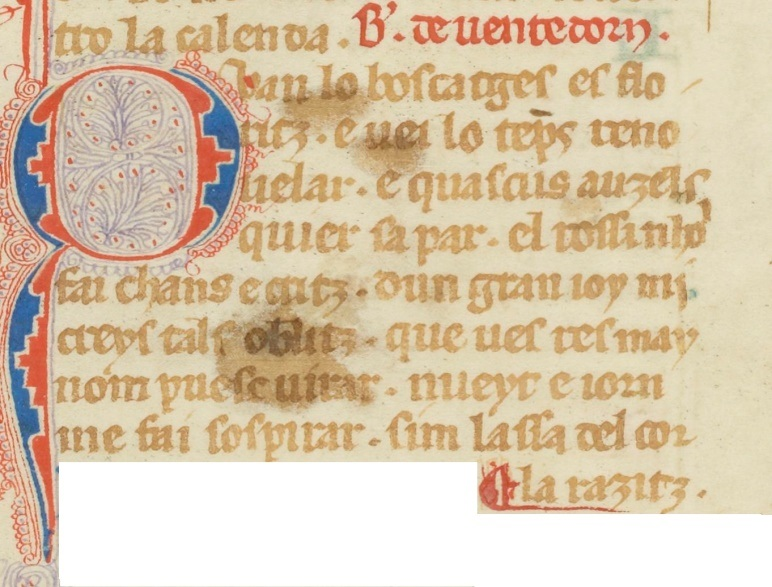 tro la calenda. B'. de uentedorn.
Qvan lo boscatges es flo
ritz. e uei lo tẽps reno
uelar. e quascus auzels
quier sa par. el rossinhol
fai chans e critz. dun gran ioy mi
creys tals oblitz. que ues res may
nom puesc uirar. nueyt e iorn
me fai sospirar. sim lassa del cor
la razitz.